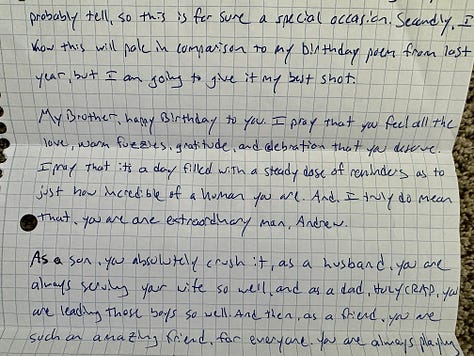 probably tell, so this is for sure a special occasion. Secondly, I
know this will pale in comparison to my birthday poem from last
year, but I am going to give it my best shot.
My Brother, happy Birthday to you. I pray that you feel all the
love, warm fuzzies, gratitude, and celebration that you deserve.
I pray that its a day filled with a steady dose of reminders as to
just how incredible of a human you are. And, I truly do mean
that, you are one extraordinary man, Andrew.
As a son, you absolutely crush it, as a husband, you are
always serving your wife so well, and as a dad, HOLY CRAP, you
are leading those boys so well. And then, as a friend, you are
such an amazing friend, for everyone. you are always playing